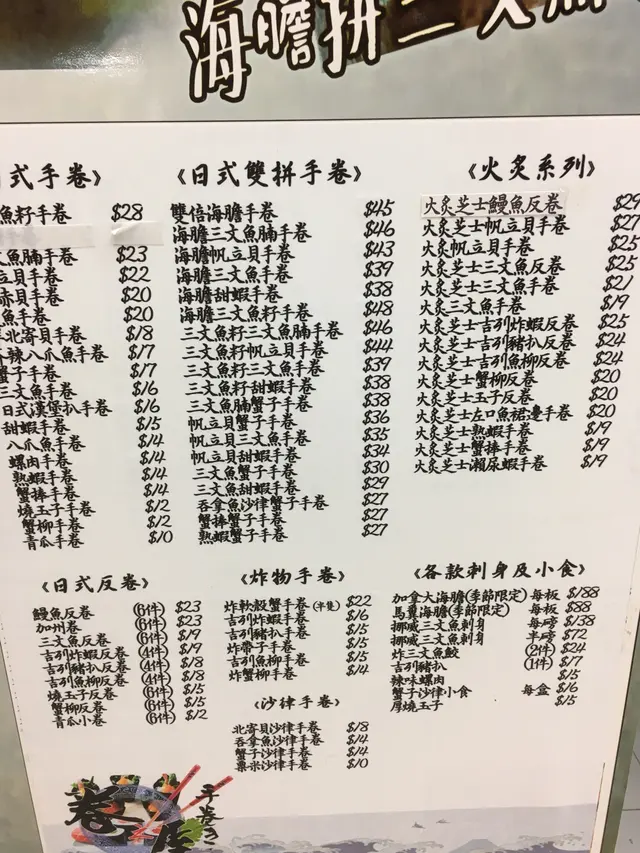 海膽拼三文魚
式手卷》
魚籽手卷 $28
文魚腩手卷 $23
立貝手卷 $22
赤貝手卷 $20
魚手卷 $20
北寄貝手卷 $18
辣八爪魚手卷 $17
蟹子手卷 $17
三文魚手卷 $16
日式漢堡扒手卷 $16
甜蝦手卷 $15
八爪魚手卷 $14
螺肉手卷 $14
熟蝦手卷 $14
蟹棒手卷 $14
燒玉子手卷 $12
蟹柳手卷 $12
青瓜手卷 $10
《日式雙拼手卷》
雙倍海膽手卷 $45
海膽三文魚腩手卷 $46
海膽帆立貝手卷 $43
海膽三文魚手卷 $39
海膽甜蝦手卷 $38
海膽三文魚籽手卷 $48
三文魚籽三文魚腩手卷 $46
三文魚籽帆立貝手卷 $44
三文魚籽三文魚手卷 $39
三文魚籽甜蝦手卷 $38
三文魚腩蟹子手卷 $38
帆立貝蟹子手卷 $36
帆立貝三文魚手卷 $35
帆立貝甜蝦手卷 $34
三文魚蟹子手卷 $30
三文魚甜蝦手卷 $29
吞拿魚沙律蟹子手卷 $27
蟹棒蟹子手卷 $27
熟蝦蟹子手卷 $27
《火炙系列》
火炙芝士鰻魚反卷 $29
火炙芝士帆立貝手卷 $27
火炙帆立貝手卷 $25
火炙芝士三文魚反卷 $25
火炙芝士三文魚手卷 $21
火炙三文魚手卷 $19
火炙芝士吉列炸蝦反卷 $25
火炙芝士吉列豬扒反卷 $24
火炙芝士吉列魚柳反卷 $24
火炙芝士蟹柳反卷 $20
火炙芝士玉子反卷 $20
火炙芝士左口魚裙邊手卷 $20
火炙芝士熟蝦手卷 $19
火炙芝士蟹棒手卷 $19
火炙芝士瀨尿蝦手卷 $19
《日式反卷》
鰻魚反卷 (6件) $23
加州卷 (6件) $23
三文魚反卷 (6件) $19
吉列炸蝦反卷 (4件) $19
吉列豬扒反卷 (4件) $18
吉列魚柳反卷 (4件) $18
燒玉子反卷 (6件) $15
蟹柳反卷 (6件) $15
青瓜小卷 (6件) $12
《炸物手卷》
炸軟殼蟹手卷(半隻) $22
吉列炸蝦手卷 $16
吉列豬扒手卷 $15
炸帶子手卷 $15
吉列魚柳手卷 $15
炸蟹柳手卷 $14
《沙律手卷》
北寄貝沙律手卷 $18
吞拿魚沙律手卷 $14
蟹子沙律手卷 $14
粟米沙律手卷 $10
《各款刺身及小食》
加拿大海膽(季節限定) 每板 $188
馬糞海膽(季節限定) 每板 $88
挪威三文魚刺身 每磅 $138
挪威三文魚刺身 半磅 $72
炸三文魚餃 (2件) $24
吉列豬扒 (1件) $17
辣味螺肉 $15
蟹子沙律小食 每盒 $16
厚燒玉子 $15
手巻き